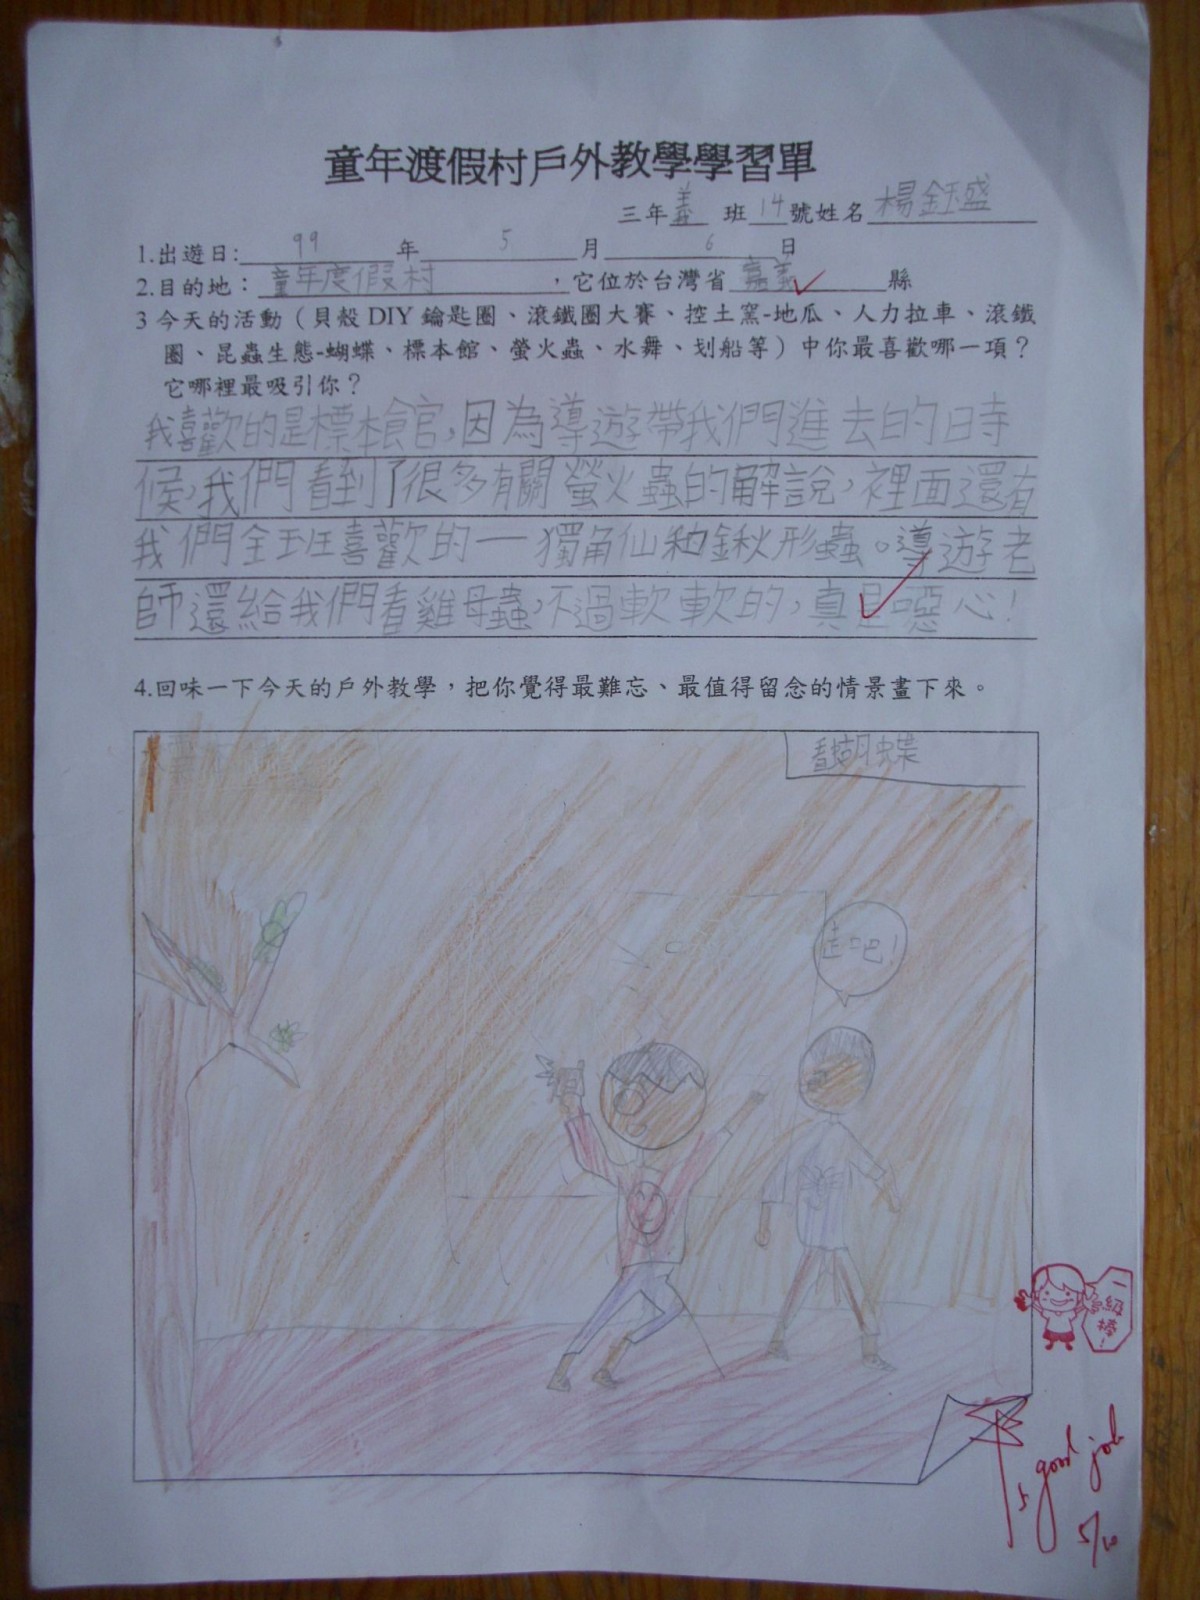 童年渡假村戶外教學學習單
三年義班14號姓名楊鈺盛
1.出遊日:99年5月6日
2.目的地:童年度假村,它位於台灣省嘉義縣
3 今天的活動(貝殼 DIY 鑰匙圈、滾鐵圈大賽、控土窯-地瓜、人力拉車、滾鐵
圈、昆蟲生態-蝴蝶、標本館、螢火蟲、水舞、划船等)中你最喜歡哪一項?
它哪裡最吸引你?
我喜歡的是標本館,因為導遊帶我們進去的時
候,我們看到了很多有關螢火蟲的解說,裡面還有
我們全班喜歡的—獨角仙和鍬形蟲。導遊老
師還給我們看雞母蟲,不過軟軟的,真是噁心!
4.回味一下今天的戶外教學,把你覺得最難忘、最值得留念的情景畫下來。
看蝴蝶
走吧!
一級棒!
good job
5/10